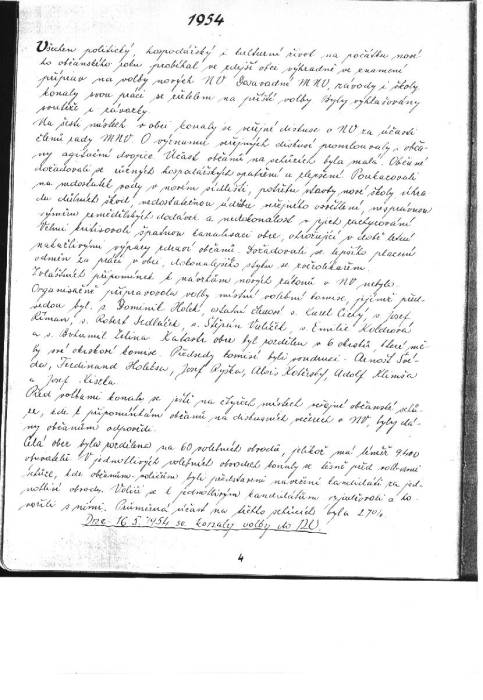 1954
Všechen politický, hospodářský i kulturní život na počátku nové
ho občanského roku probíhal ve zdejší obci výhradně ve znamení
příprav na volby nových NV Dosavadní MNV, závody i školy
konaly svou práci se zřetelem na příští volby Byly vyhlašovány
soutěže i závazky
Na šesti místech v obci konaly se veřejné diskuse o NV za účasti
členů rady MNV. O významu veřejných diskusí promlouvaly i obča-
ny agitační dvojice Účast občanů na schůzích byla malá. Občané
dožadovali se různých hospodářských opatření a zlepšení. Poukazovali
na nedostatek vody v novém sídlišti, potřebu stavby nové školy
du dílnách škol, nedostatečnou údržbu veřejného osvětlení, nesprávnou
výměru zemědělských dodávek a nedokonalost v jejich zachycování
Velmi kritisovali špatnou kanalisaci obce, ohrožující v době letní
nakažlivými výpary zdraví občanů. Dožadovali se lepšího placení
odměn za práci v obci, dokonalejšího styku se zvěrolékařem.
Zvláštních připomínek k návrhům nových zákonů o NV nebylo.
Organisačně připravovala volby místní volební komise, jejímž před-
sedou byl s. Dominik Holek, ostatní členové s. Karel Čečky, s Josef
Řiman, s. Robert Sedláček, s. Štěpán Vašíček, s. Emilie Kolderová
a s. Bohumil Zelina Katastr obce byl rozdělen v 6 okrsků které mě-
ly své okrskové komise. Předsedy komisí byli soudruzi: Arnošt Své-
da, Ferdinand Holeksa, Josef Ryška, Alois Kotěrský, Adolf Klimša
a Josef Kiszka.
Před volbami konaly se ještě na čtyřech místech veřejné občanské schů-
ze, kde k připomínkám občanů na diskusních večerech o NV, byly dá-
ny občanům odpovědi.
Celá obec byla rozdělena na 60 volebních obvodů, jelikož má téměř 9400
obyvatelů V jednotlivých volebních obvodech konaly se těsně před volbami
schůze, kde občanům-voličům byli představeni navržení kandidáti za jed-
notlivé obvody. Voliči se k jednotlivým kandidátům vyjadřovali a ho-
vořili s nimi. Průměrná účast na těchto schůzích byla 27%
Dne 16.5.1954 se konaly volby do NV
4